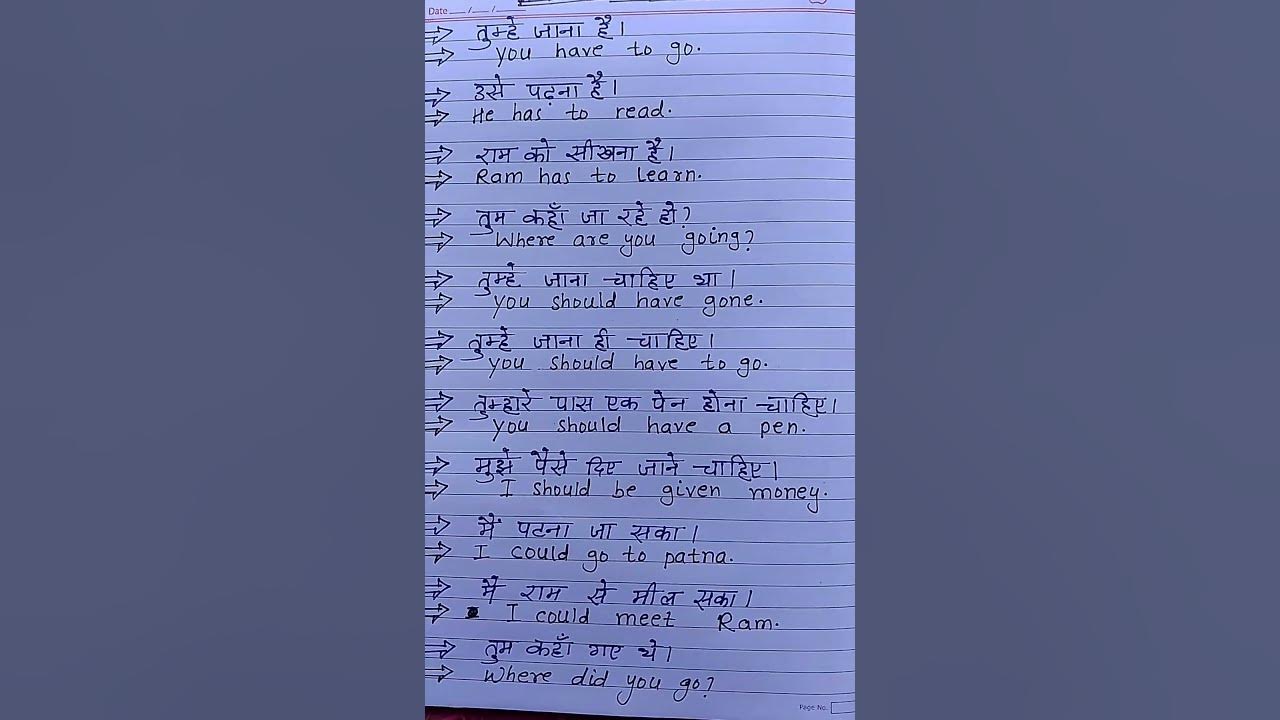 Date ___/___/___
⇒ तुम्हे जाना है।
⇒ you have to go.
⇒ उसे पढ़ना है।
⇒ He has to read.
⇒ राम को सीखना है।
⇒ Ram has to learn.
⇒ तुम कहाँ जा रहे हो?
⇒ Where are you going?
⇒ तुम्हे जाना चाहिए था।
⇒ you should have gone.
⇒ तुम्हे जाना ही चाहिए।
⇒ you should have to go.
⇒ तुम्हारे पास एक पेन होना चाहिए।
⇒ you should have a pen.
⇒ मुझे पैसे दिए जाने चाहिए।
⇒ I should be given money.
⇒ मैं पटना जा सका।
⇒ I could go to patna.
⇒ मैं राम से मील सका।
⇒ I could meet Ram.
⇒ तुम कहाँ गए थे।
⇒ Where did you go?
Page No.